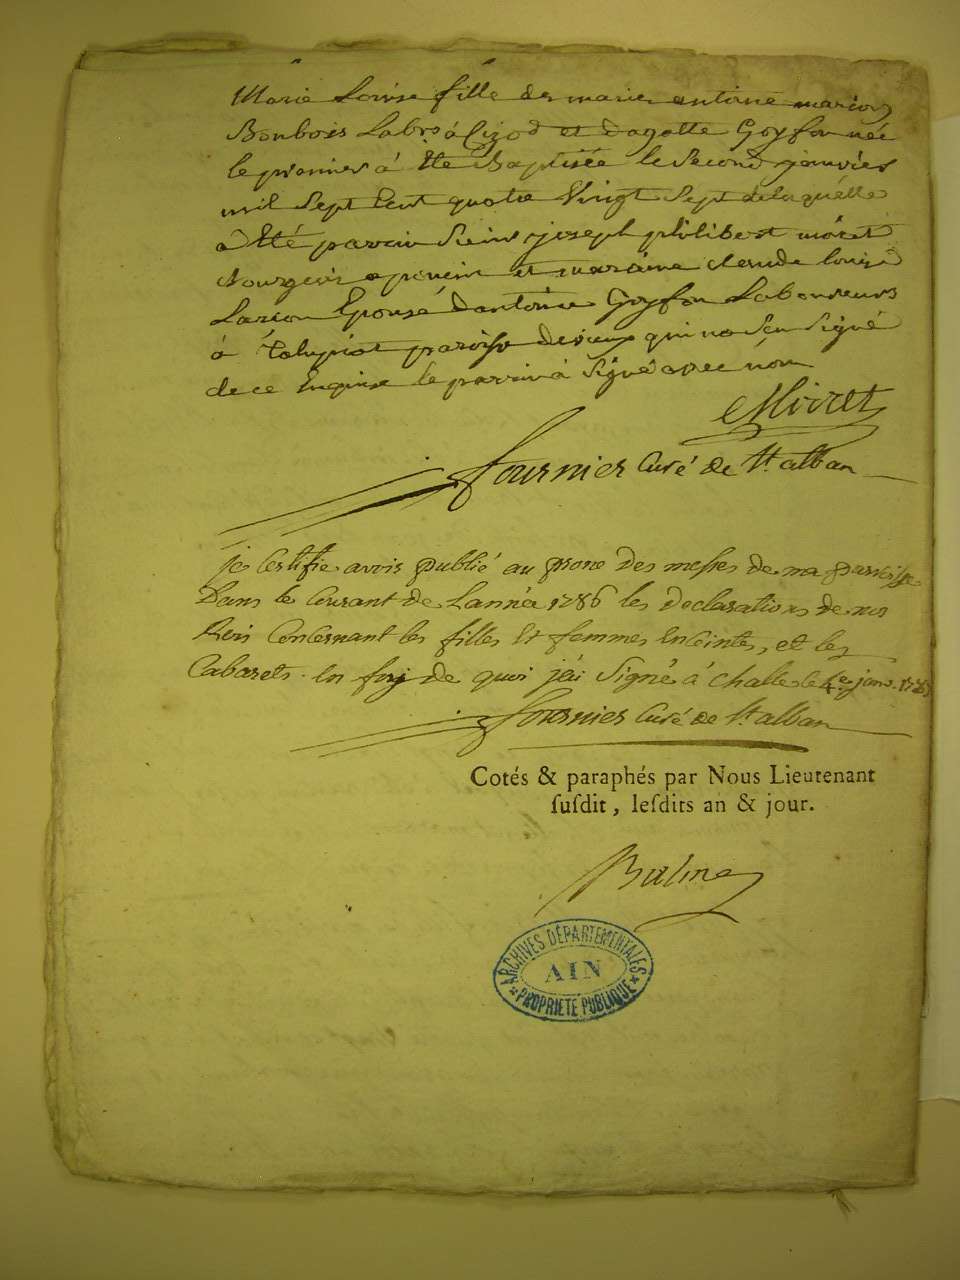 Marie Louise fille de marie antoine marion
Bonbois Labr à Cizod et dagatte Goyfon née
le premier à Eté Baptisée le Second janvier
mil Sept Cent quatre Vingt Sept de laquelle
à Eté parrain Sieur joseph philibert
Bourgeois a poncin et maraine claude louise
Épouse d'antoine Goyfon Laboureurs
à paroisse de qui na Seu Signé
de ce Enquise le parrain à Signé avec nou
Mirret
fournier Curé de St. alban
je Certifie avoir publié au prone des messes de ma parroisse
Dans le Courant de Lannée 1786 les declarations de nos
Rois Concernant les filles Et femmes Enceintes, et les
Cabarets. en foy de quoi j'ai Signé à challe le 4e janv. 1787
fournier Curé de St. alban
Cotés & paraphés par Nous Lieutenant
ſuſdit, leſdits an & jour.
Balme
ARCHIVES DÉPARTEMENTALES
AIN
* PROPRIÉTÉ PUBLIQUE *